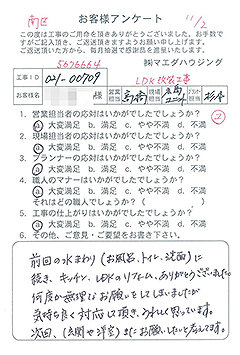 南区
11/2
お客様アンケート
この度は工事のご用命を頂きありがとうございました。お手数で
すがご記入頂き、ご返送頂きますようお願い申し上げます。
ご返送頂いた方から、毎月抽選で感謝品を進呈いたします。
5676664
㈱マエダハウジング
工事ID 021-00709
LDK改装工事
お客様名 様 営業担当 現場担当 プランナー担当
②
1. 営業担当者の応対はいかがでしたでしょうか?
ⓐ大変満足 b. 満足 c. やや不満 d. 不満
2. 現場担当者の応対はいかがでしたでしょうか?
ⓐ大変満足 b. 満足 c. やや不満 d. 不満
3. プランナーの応対はいかがでしたでしょうか?
ⓐ大変満足 b. 満足 c. やや不満 d. 不満
4. 職人のマナーはいかがでしたでしょうか?
ⓐ大変満足 b. 満足 c. やや不満 d. 不満
それはどの職人でしょうか?( )
5. 工事の仕上がりはいかがでしたでしょうか?
ⓐ大変満足 b. 満足 c. やや不満 d. 不満
6. その他、ご意見・ご要望をお書き下さい。
前回の水まわり(お風呂、トイレ、洗面)に
続き、キッチン、LDKのリフォーム、ありがとうございました。
何度か無理なお願いをしてしまいましたが
気持ち良く対応して頂き、うれしく思っています。
次回、(玄関や洋室)またお願いしたいと考えてます。